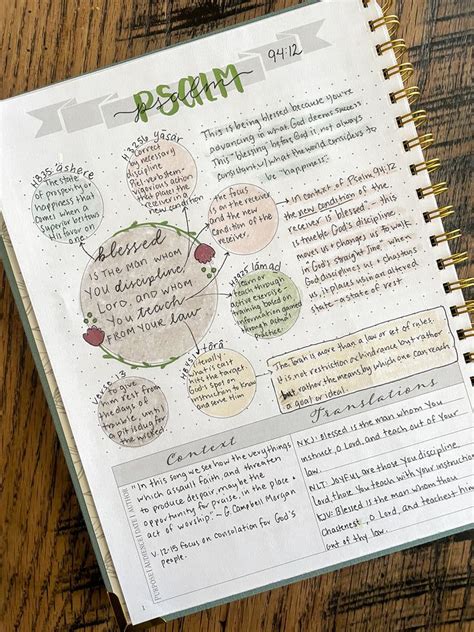 PSALM
psalm
94:12
This is being blessed because you're
advancing in what God deems success.
This "blessing" before God is not always
consistant w/ what the world considers to
be "happiness".
H835 āshere
The state
of prosperity or
happiness that
comes when a
superior bestows
His favor on
one.
H3256 yāsar
correct
necessary
discipline
Piel verb stem -
vigorous action
that places the
receiver in a
new condition
the focus
is on the receiver
and the new
condition of the
receiver.
In context of Psalm 94:12
the new condition of the
receiver is "blessed" - this
is true to God's discipline
moves us & changes us to walk
in "God's straight line" when
God disciplines us & chastens
us, it places us in an altered
state - a state of rest
blessed
IS THE MAN WHOM
YOU discipline,
LORD, AND WHOM
YOU teach
FROM YOUR law
H3925 lāmad
learn or
teach through
active exercise
training based on
information gained
through action/
practice
H8451 tôrâ
literally
what is cast
hits the target.
God's spot on
instruction to know
and serve Him
The Torah is more than a law or set of rules.
It is not restriction or hindrance but rather
but rather the means by which one can reach
a goal or ideal.
Verse 13
to give
him rest from
the days of
trouble, until
a pit is dug for
the wicked
Context
PURPOSE | AUDIENCE | DATE | AUTHOR
"In this song we see how the very things
which assault faith, and threaten
to produce despair, may be the
opportunity for praise, in the place &
act of worship." ~ G Campbell Morgan
V. 12-15 Focus on consolation for God's
people.
Translations
NKJ: Blessed is the man whom You
instruct, O Lord, and teach out of Your
law.
NLT: Joyful are those you discipline,
Lord, those You teach with your instructions
KJV: Blessed is the man whom thou
Chastenest, O Lord, and teachest him
out of thy law.
1